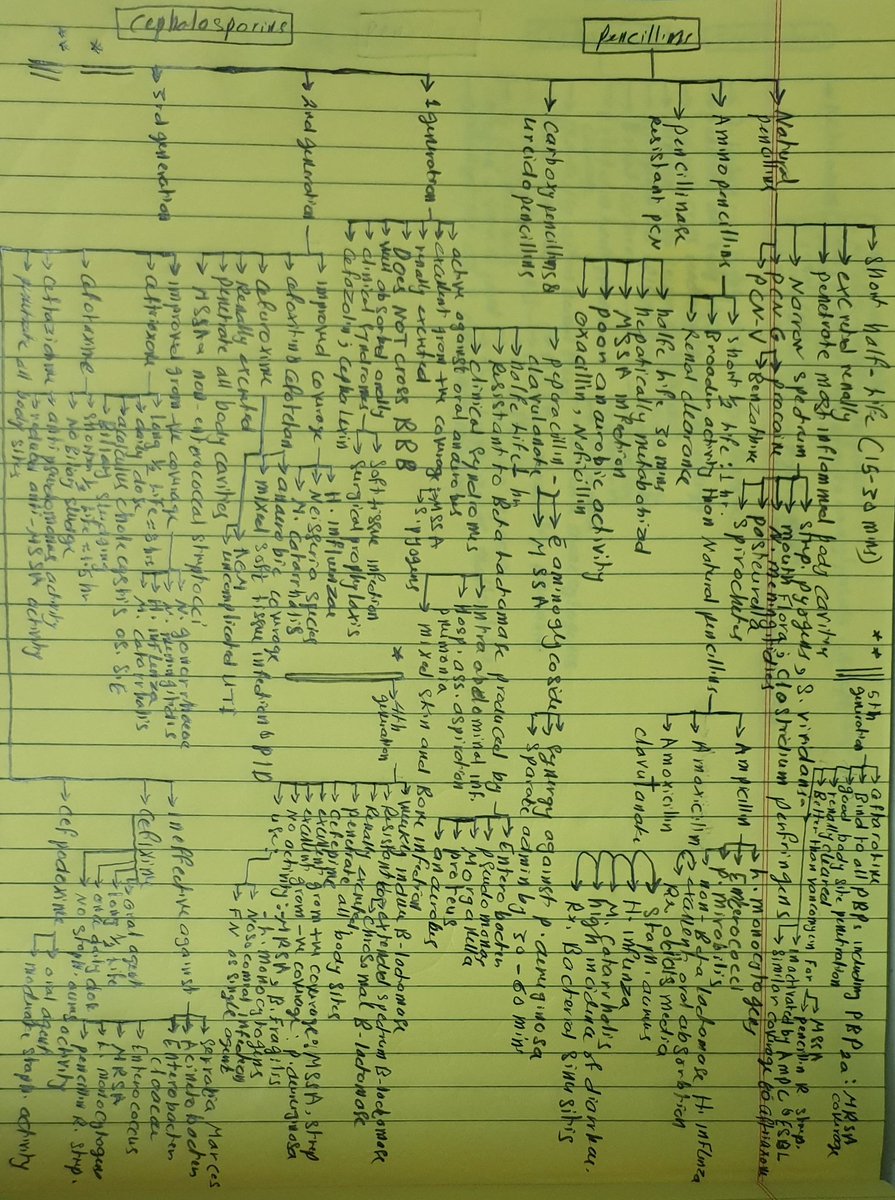 Pencillins
Natural pencillins
short half-life (15-30 mins)
excreted renally
penetrate most inflammed body cavity
Narrow spectrum
strep. pyogens, S. viridans
mouth flora; clostridium perfringens
N. meningitidies
pasteurella
Spirochetes
PCN-G
procaine
Benzathine
PCN-V
Aminopencillins
short ½ life: 1 hr.
Broader activity than Natural pencillins
Renal clearance
Ampicillin
L. monocytogens
Enterococci
P. mirabilis
non-Beta lactomase H. influnza
Amoxicillin
excellent oral absorbtion
Rx otitis media
Amoxicillin
+
clavulanate
Staph. aureus
H. influnza
M. Catarrhalis
high incidence of diarrhea.
Rx. Bacterial sinusitis
pencillinase resistant PCN
halfe life 30 mins
hepatically metabolized
MSSA infection
poor anaerobic activity
oxacillin, Nafcillin
Carboxypencillins &
ureidopencillins
piperacillin -
clavulanate
ē aminoglycoside
Synergy against p. aeruginosa
Sparate admin by 30-60 mins
MSSA
halfe life 1 hr
Resistant to Beta lactomase produced by
Enterobacter
pseudomonas
Morganella
proteus
anaerobes
clinical syndromes
Intra abdominal inf.
Hosp. ass. aspiration
pneumonia
mixed skin and Bone infection
Cephalosporins
1 generation
active against oral anaerobes
excellent gram +ve coverage
MSSA
S. pyogens
renally excreted
DOES NOT CROSS BBB
well absorbed orally
clinical syndromes
Soft tissue infection
Surgical prophylaxis
Cefazolin, cephalexin
2nd generation
improved coverage
H. influnzae
Neisseria species
M. catarrhalis
cefoxitin & cefotetan
anaerobic coverage
mixed soft tissue infection & PID
Cefuroxime
ACM
uncomplicated UTI
Renally excreted
penetrate all body cavities
MSSA & non-enterococcal streptococci
3rd generation
improved gram -ve coverage
N. gonorrhaeae
N. meningitidis
H. influnza
M. catarrhalis
Ceftriaxone
Long ½ life = 8 hrs
daily dose
acalculus cholecystis as. S/E
Billiary sludging
Cefotaxime
Shorter ½ life = 1.5 hr
No Biliary sludge
Ceftazidime
anti pseudomonas activity
reduced anti-MSSA activity
penetrate all body sites
Ineffective against
Serratia Marces
Acinetobacter
Enterobacter
cloacae
Enterococcus
MRSA
L. monocytogens
pencillin R. Strep.
Cefixime
oral agent
long ½ life
once daily dose
No staph. aureus activity
Cefpodoxime
oral agent
moderate staph. activity
* 4th
generation
weakly induce B-lactomase
Resistant to extended spectrum B-lactomase
& chromosomal B-lactomase
Renally excreted
penetrate all body sites
Cefepime
excellent gram +ve coverage: MSSA, strep
excellent gram -ve coverage: P. aeruginosa
No activity: MRSA, B. fragilis
L. monocytogens
use:
Nosocomial infection
FN as single agent
** 5th
generation
Ceftaroline
Bind to all PBPs including PBP2a: MRSA
coverage
good body site penetration
renally cleared
Better than vancomycin for
MSSA
pencillin R strep.
inactivated by AmpC & ESBL
similar coverage to ceftriaxone